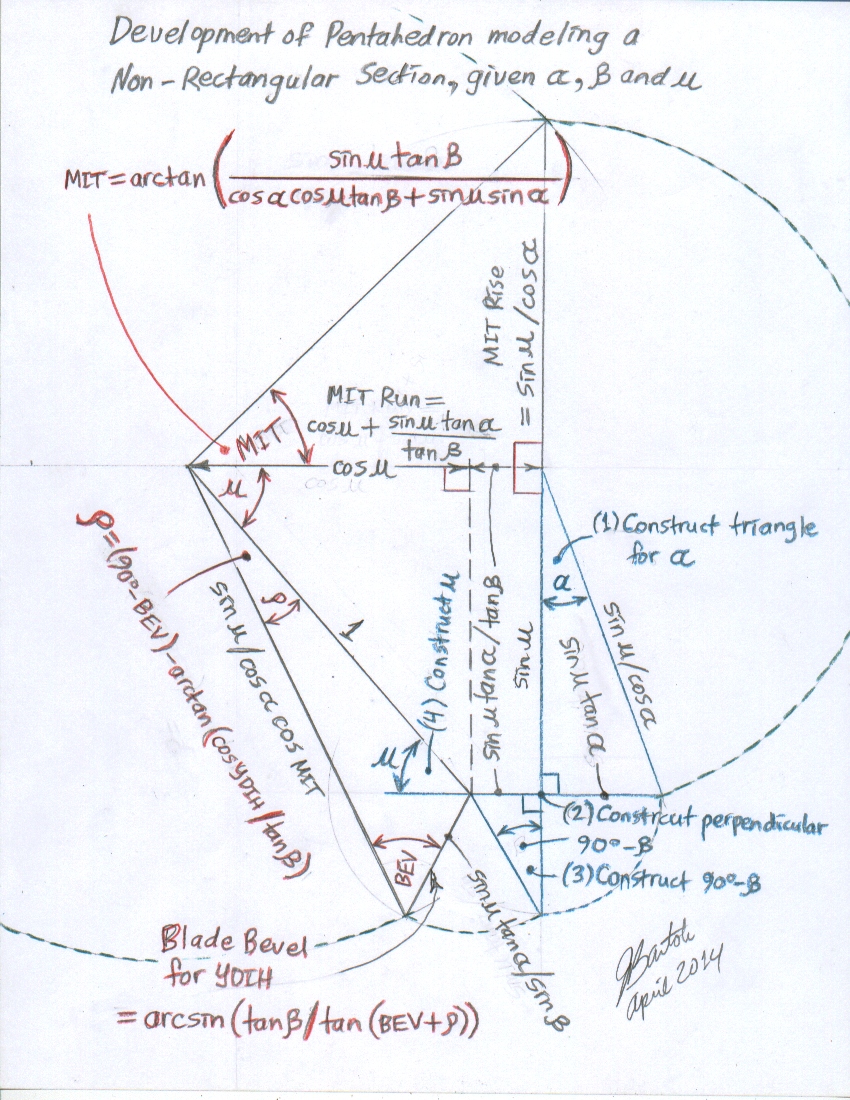 Development of Pentahedron modeling a
Non-Rectangular Section, given α, β and μ
MIT = arctan ( sin μ tan β / cos α cos μ tan β + sin μ sin α )
MIT Rise
= sin μ / cos α
MIT Run =
cos μ + sin μ tan α / tan β
MIT
cos μ
μ
(1) Construct triangle
for α
α
ρ = (90°-BEV) - arctan (cos YDIH / tan β)
ρ
1
sin μ / cos α cos MIT
(4) Construct μ
sin μ tan α / tan β
sin μ
sin μ tan α
sin μ / cos α
μ
(2) Constrcut perpendicular
90°-β
(3) Construct 90°-β
BEV
sin μ tan α / sin β
Blade Bevel
for YDIH
= arcsin (tan β / tan (BEV + ρ))
JBartok
April 2014